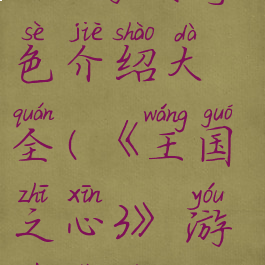 sè jiè shào dà
色介绍大
quán wáng guó
全(《王国
zhī xīn yóu
之心3》游